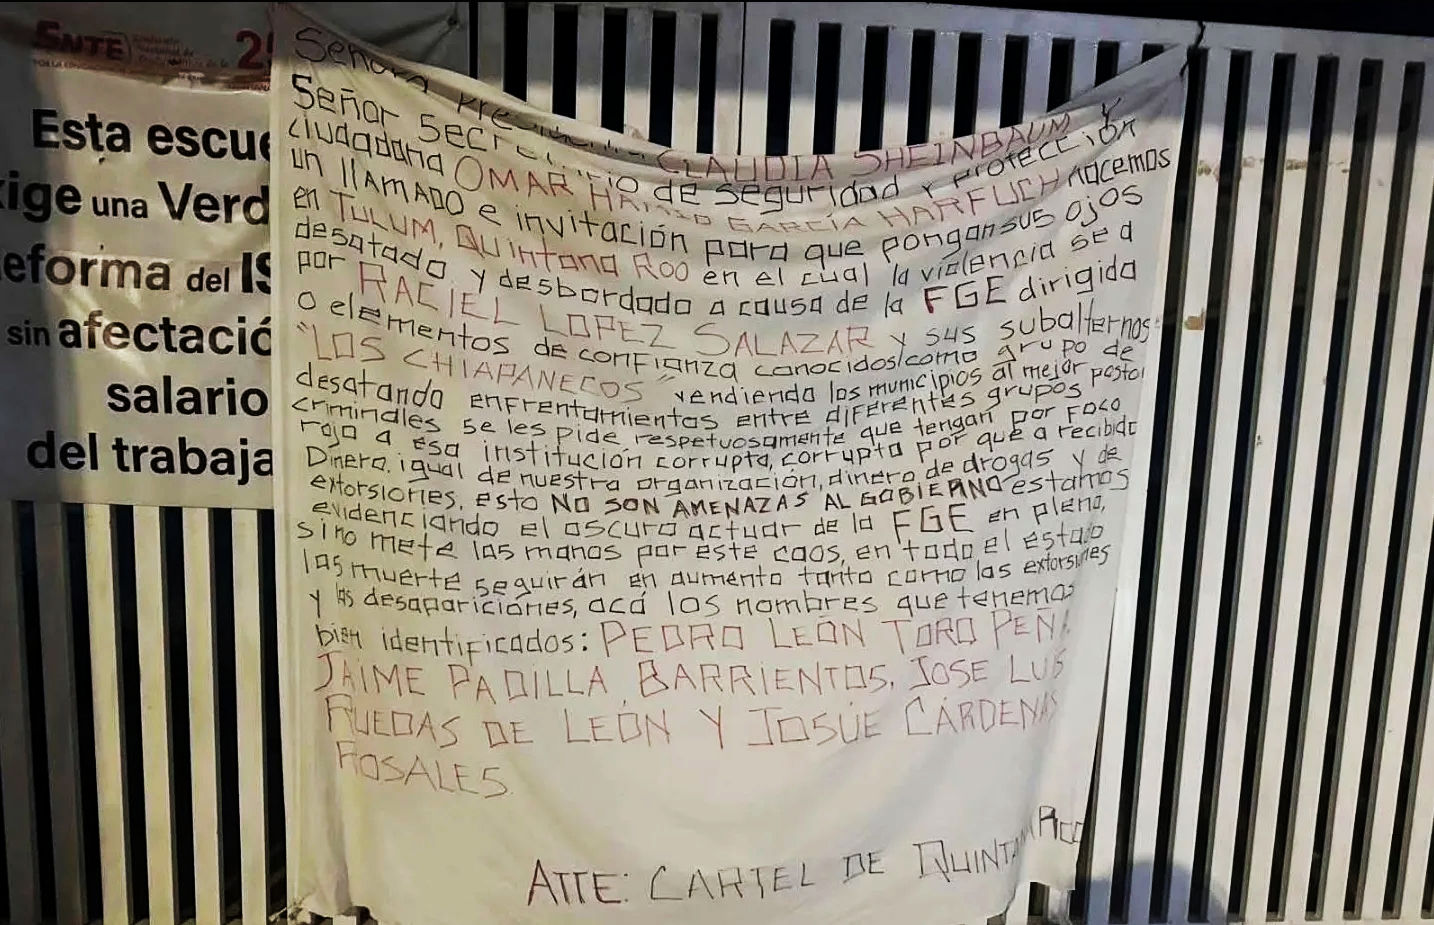 SNTE
Esta escue
xige una Verd
eforma del IS
sin afectació
salario
del trabaja
Señora Presidenta CLAUDIA SHEINBAUM Y
Señor Secretario de seguridad y protección
ciudadana OMAR HAMID GARCÍA HARFUCH hacemos
un llAMADO e invitación para que pongan sus ojos
en TULUM, Quintana Roo en el cual la violencia se a
desatado y desbordado a causa de la FGE dirigida
por RACIEL LOPEZ SALAZAR y sus subalternos
o elementos de confianza conocidos como grupo de
"LOS CHIAPANECOS" vendiendo los municipios al mejor postor
desatando enfrentamientos entre diferentes grupos
criminales se les pide respetuosamente que tengan por foco
rojo a esa institución corrupta, corrupta por que a recibido
Dinero, igual de nuestra organización, dinero de drogas y de
extorsiones, esto NO SON AMENAZAS AL GOBIERNO estamos
evidenciando el oscuro actuar de la FGE en pleno,
si no mete las manos por este caos, en todo el estado
las muerte seguirán en aumento tanto como las extorsiones
y las desapariciónes, acá los nombres que tenemos
bien identificados: PEDRO LEÓN TORO PEÑA
JAIME PADILLA BARRIENTOS, JOSE LUIS
RUEDAS DE LEÓN Y JOSUE CÁRDENAS
ROSALES.
ATTE: CARTEL DE QUINTANA ROO